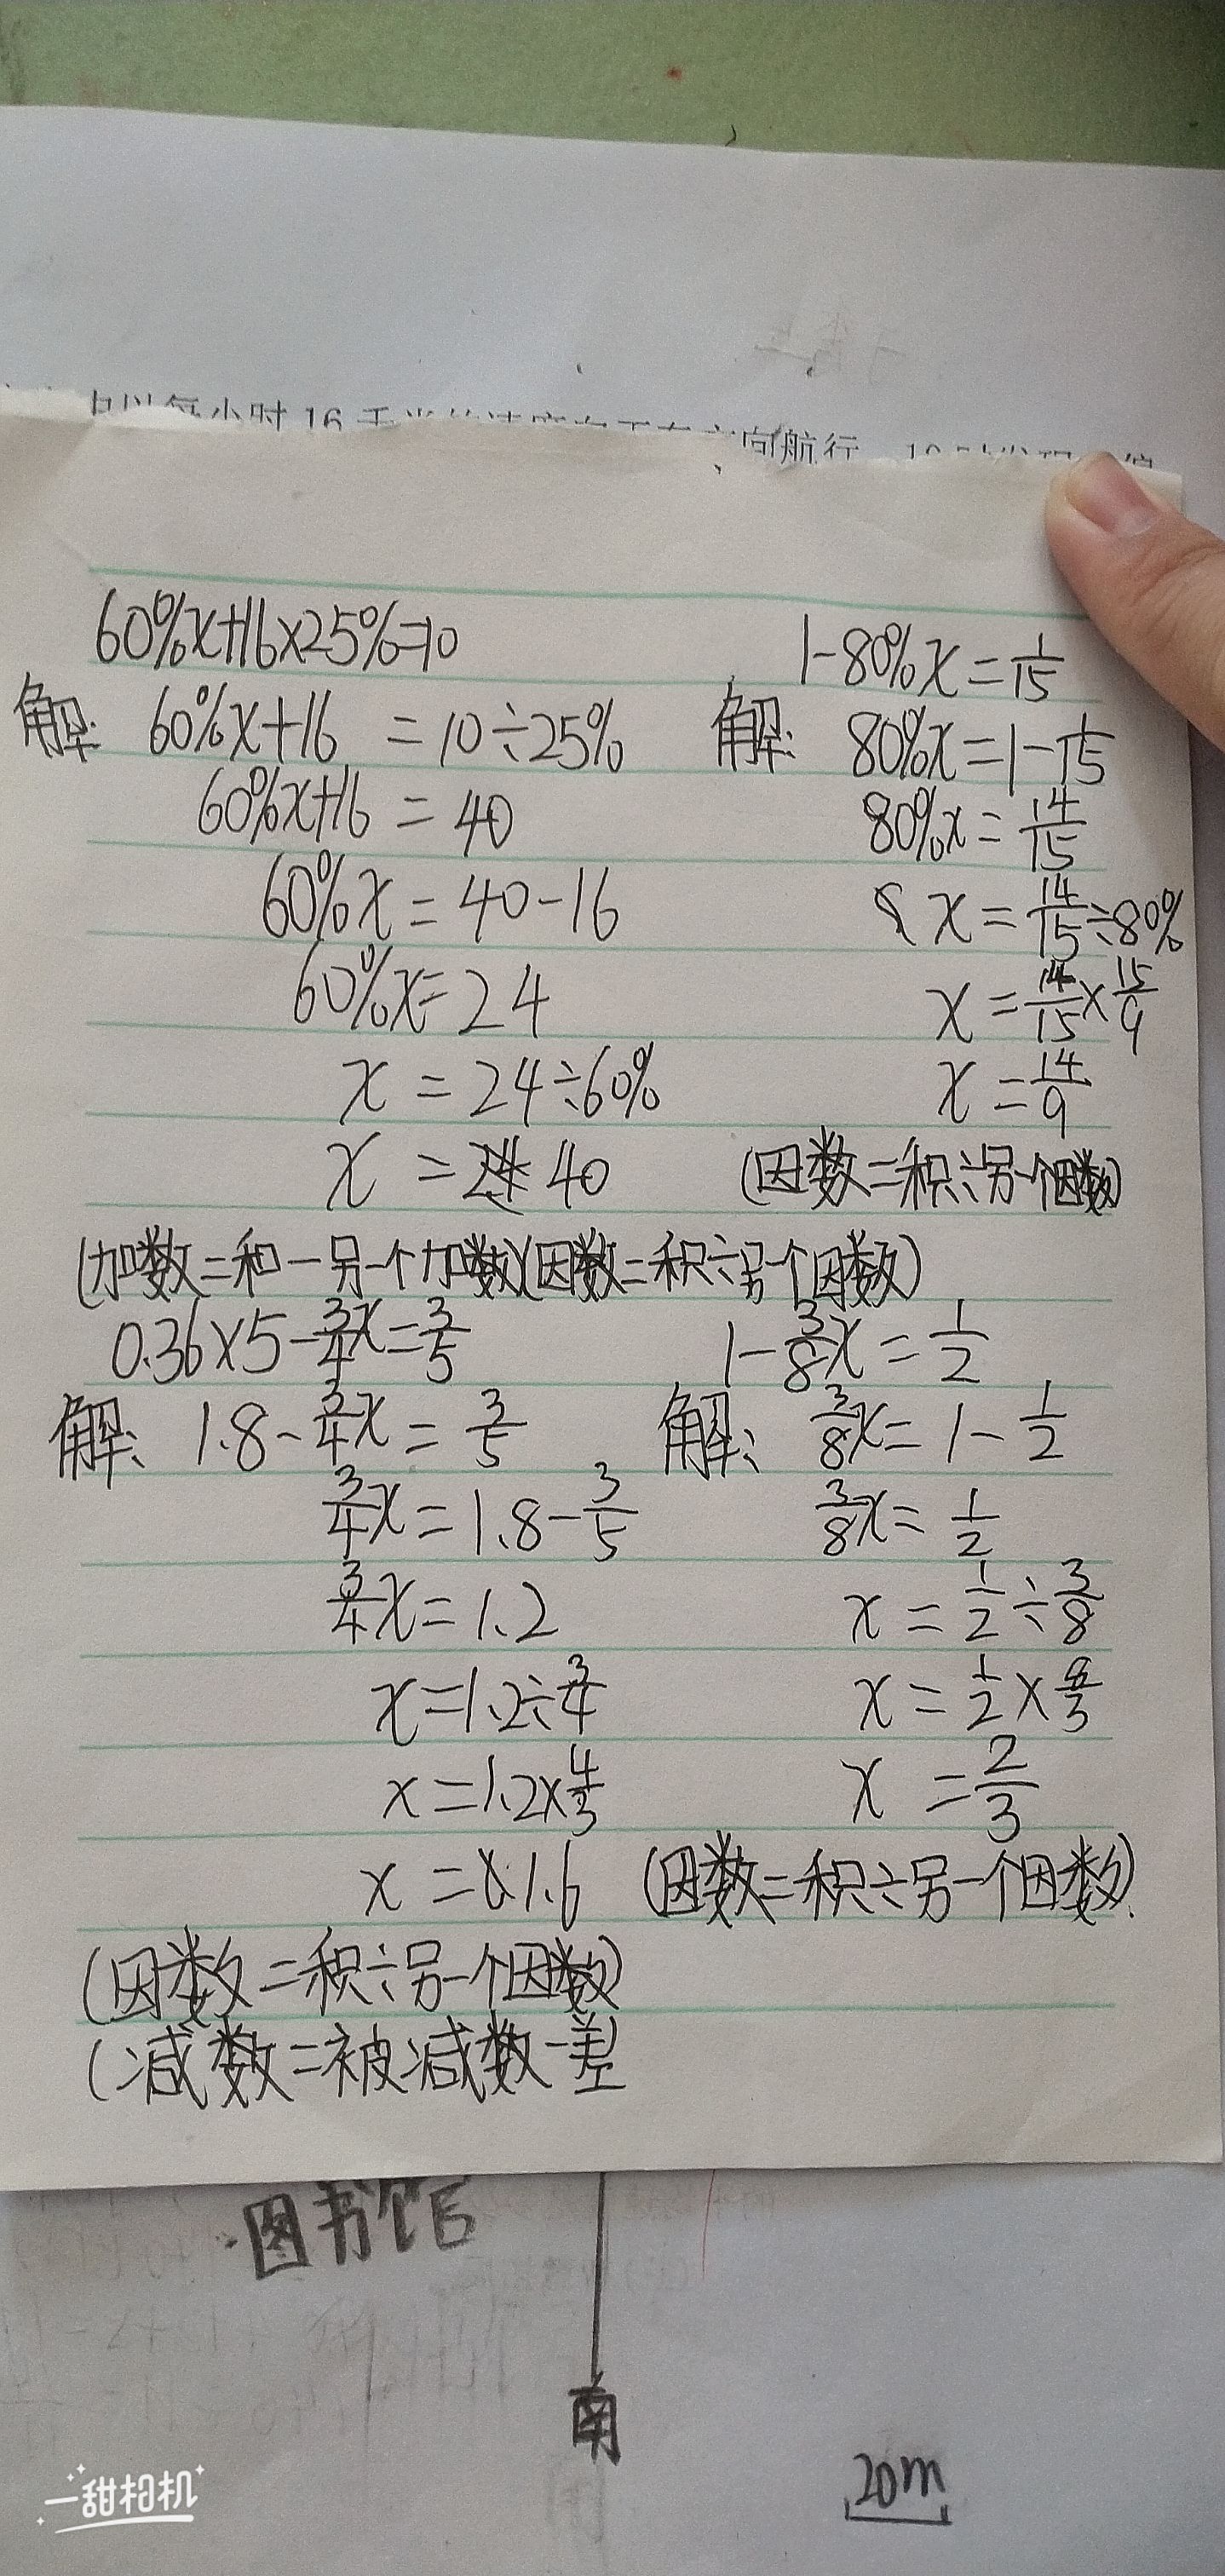 小时 16 千米的速度向正东方向航行
60%x+16×25%=10
解: 60%x+16 = 10÷25%
60%x+16 = 40
60%x = 40-16
60%x = 24
x = 24÷60%
x = 40
(加数=和-另一个加数)(因数=积÷另一个因数)
1-80%x=1/15
解: 80%x=1-1/15
80%x=14/15
x=14/15÷80%
x=14/15×15/9
x=14/9
(因数=积÷另一个因数)
0.36×5-3/4x=3/5
解: 1.8-3/4x=3/5
3/4x=1.8-3/5
3/4x=1.2
x=1.2÷3/4
x=1.2×4/3
x=1.6
(因数=积÷另一个因数)
(减数=被减数-差
1-3/8x=1/2
解: 3/8x=1-1/2
3/8x=1/2
x=1/2÷3/8
x=1/2×8/3
x=2/3
(因数=积÷另一个因数)
图书馆
南
20m
一甜相机